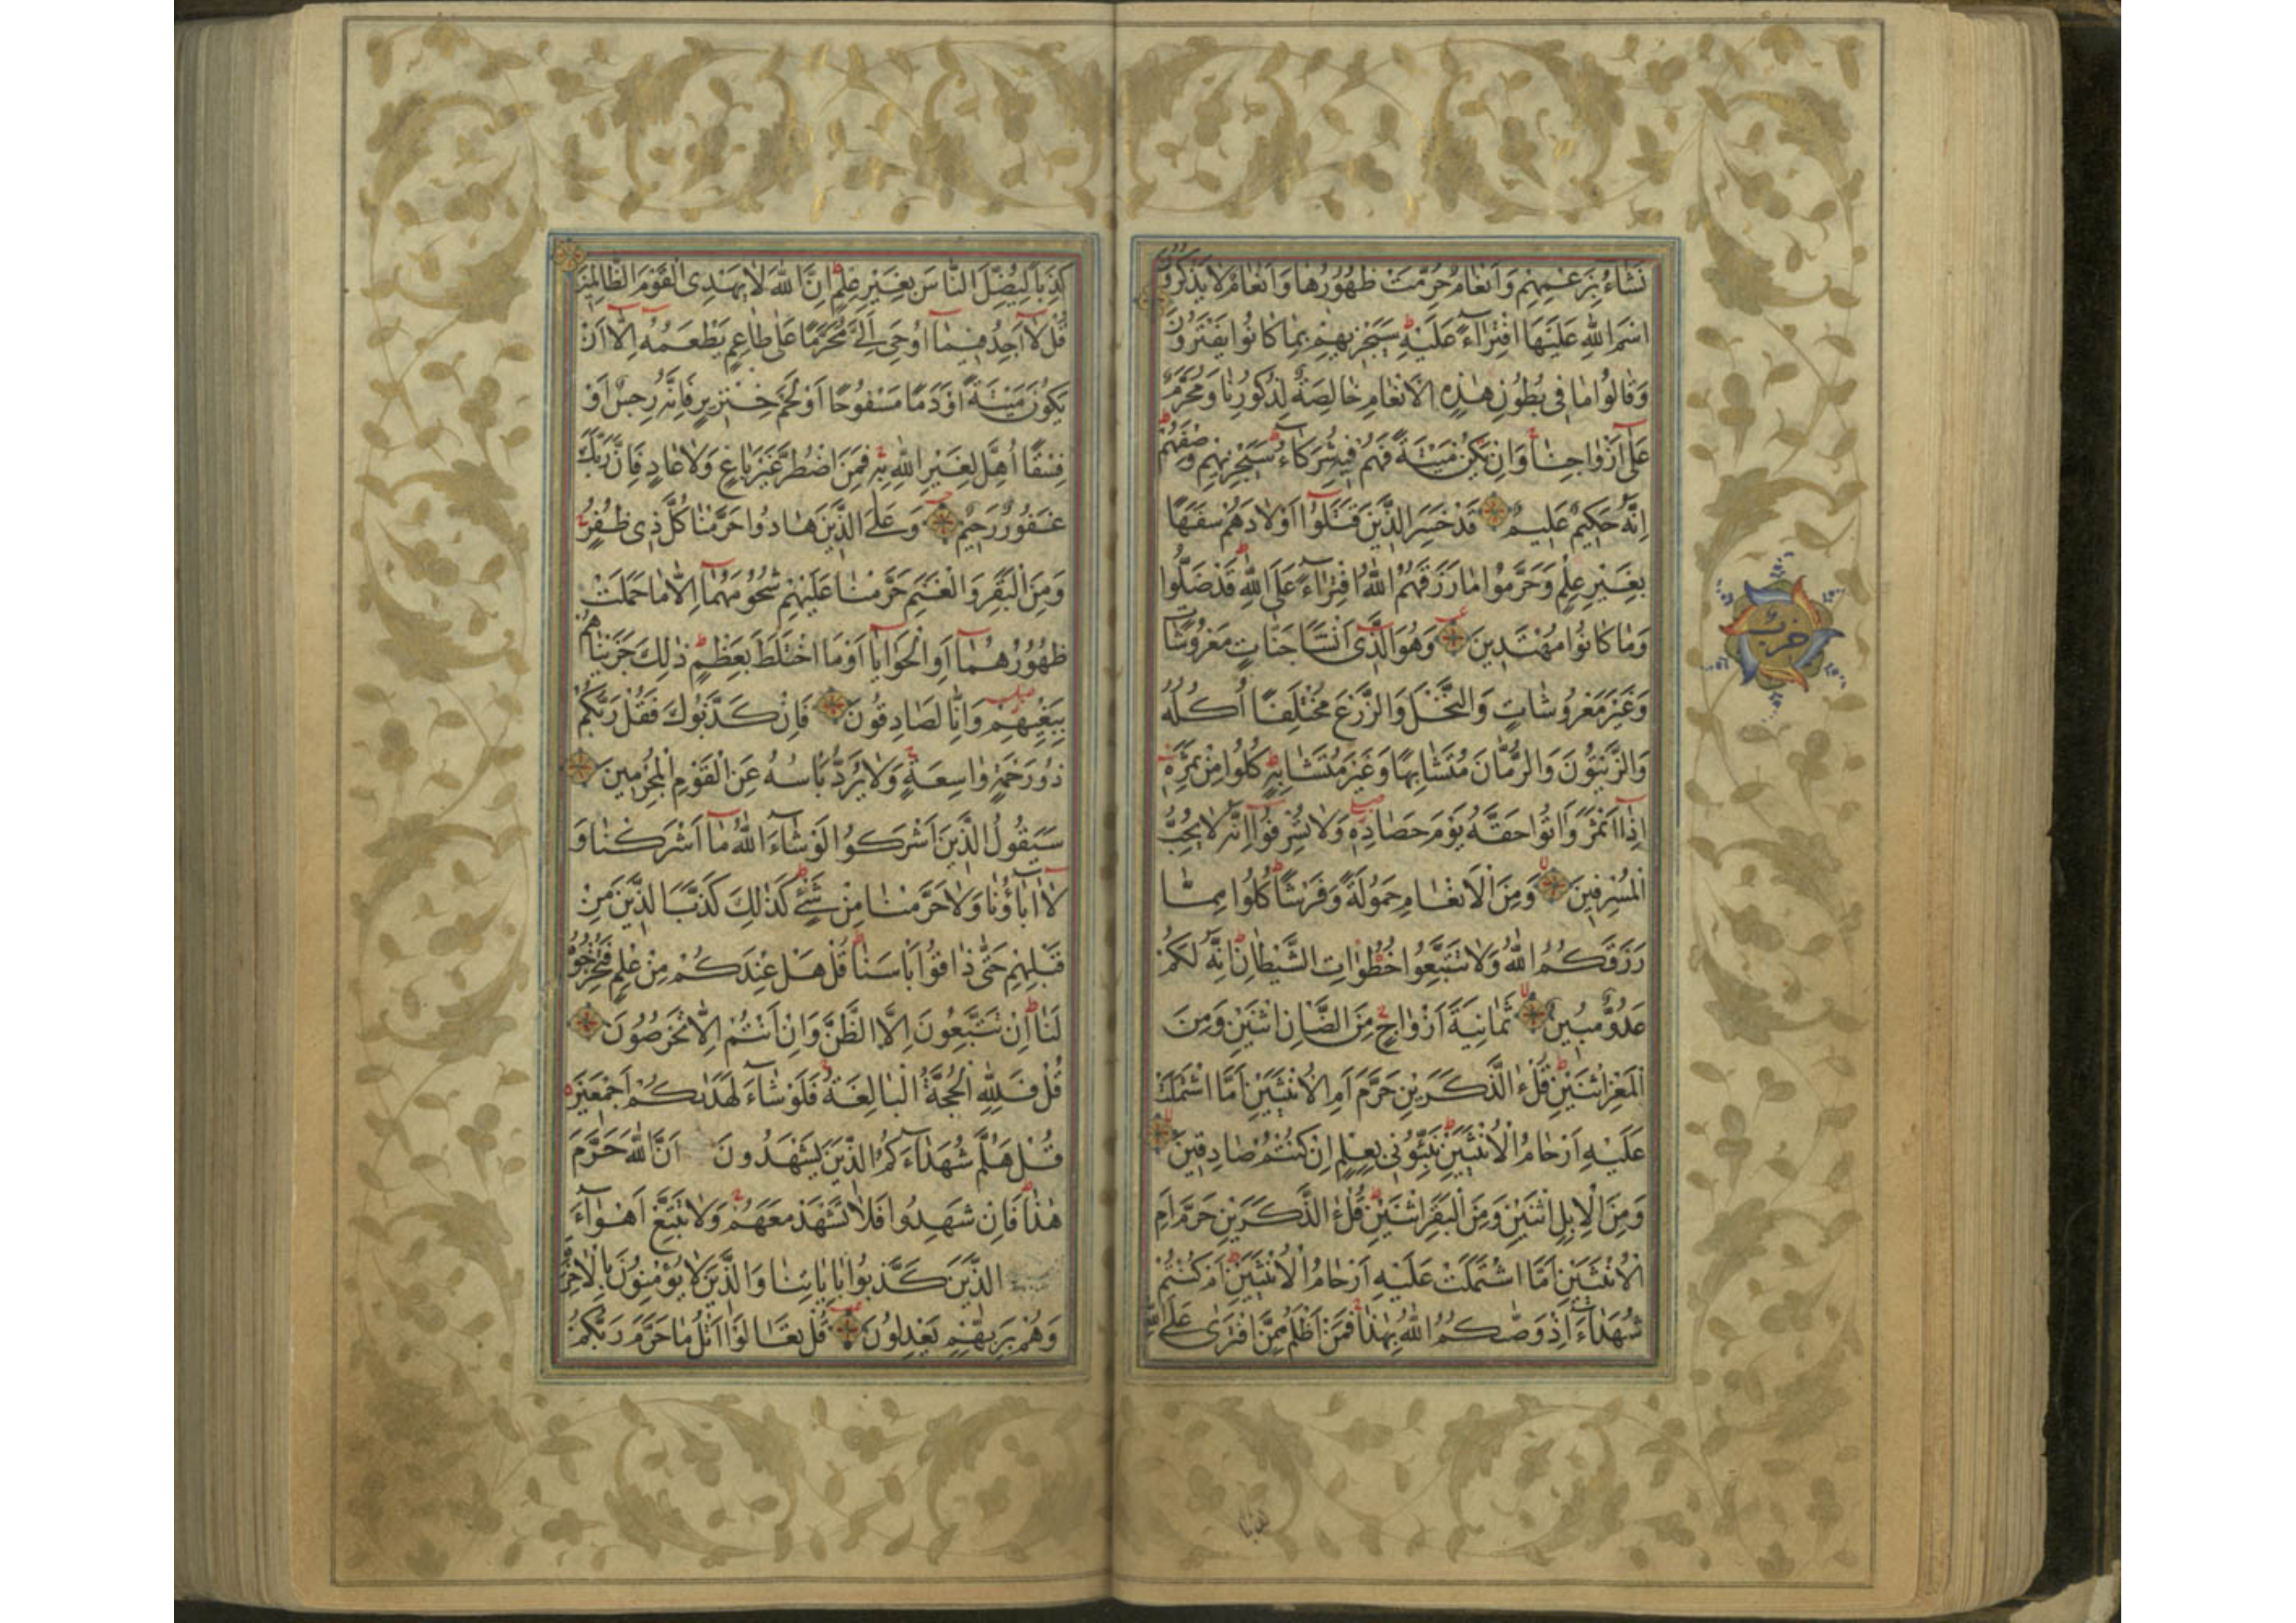 نَشَاءُ بِزَعْمِهِمْ وَاَنْعَامٌ حُرِّمَتْ ظُهُورُهَا وَاَنْعَامٌ لَا يَذْكُرُونَ
اسْمَ اللّٰهِ عَلَيْهَا افْتِرَاءً عَلَيْهِ سَيَجْزِيهِمْ بِمَا كَانُوا يَفْتَرُونَ
وَقَالُوا مَا فِى بُطُونِ هٰذِهِ الْاَنْعَامِ خَالِصَةٌ لِذُكُورِنَا وَمُحَرَّمٌ
عَلٰى اَزْوَاجِنَا وَاِنْ يَكُنْ مَيْتَةً فَهُمْ فِيهِ شُرَكَاءُ سَيَجْزِيهِمْ وَصْفَهُمْ
اِنَّهُ حَكِيمٌ عَلِيمٌ قَدْ خَسِرَ الَّذِينَ قَتَلُوا اَوْلَادَهُمْ سَفَهًا
بِغَيْرِ عِلْمٍ وَحَرَّمُوا مَا رَزَقَهُمُ اللّٰهُ افْتِرَاءً عَلَى اللّٰهِ قَدْ ضَلُّوا
وَمَا كَانُوا مُهْتَدِينَ وَهُوَ الَّذِى اَنْشَاَ جَنَّاتٍ مَعْرُوشَاتٍ
وَغَيْرَ مَعْرُوشَاتٍ وَالنَّخْلَ وَالزَّرْعَ مُخْتَلِفًا اُكُلُهُ
وَالزَّيْتُونَ وَالرُّمَّانَ مُتَشَابِهًا وَغَيْرَ مُتَشَابِهٍ كُلُوا مِنْ ثَمَرِهِ
اِذَا اَثْمَرَ وَاٰتُوا حَقَّهُ يَوْمَ حَصَادِهِ وَلَا تُسْرِفُوا اِنَّهُ لَا يُحِبُّ
الْمُسْرِفِينَ وَمِنَ الْاَنْعَامِ حَمُولَةً وَفَرْشًا كُلُوا مِمَّا
رَزَقَكُمُ اللّٰهُ وَلَا تَتَّبِعُوا خُطُوَاتِ الشَّيْطَانِ اِنَّهُ لَكُمْ
عَدُوٌّ مُبِينٌ ثَمَانِيَةَ اَزْوَاجٍ مِنَ الضَّاْنِ اثْنَيْنِ وَمِنَ
الْمَعْزِ اثْنَيْنِ قُلْ ءٰالذَّكَرَيْنِ حَرَّمَ اَمِ الْاُنْثَيَيْنِ اَمَّا اشْتَمَلَتْ
عَلَيْهِ اَرْحَامُ الْاُنْثَيَيْنِ نَبِّئُونِى بِعِلْمٍ اِنْ كُنْتُمْ صَادِقِينَ
وَمِنَ الْاِبِلِ اثْنَيْنِ وَمِنَ الْبَقَرِ اثْنَيْنِ قُلْ ءٰالذَّكَرَيْنِ حَرَّمَ اَمِ
الْاُنْثَيَيْنِ اَمَّا اشْتَمَلَتْ عَلَيْهِ اَرْحَامُ الْاُنْثَيَيْنِ اَمْ كُنْتُمْ
شُهَدَاءَ اِذْ وَصّٰىكُمُ اللّٰهُ بِهٰذَا فَمَنْ اَظْلَمُ مِمَّنِ افْتَرٰى عَلَى اللّٰهِ
حزب
كَذِبًا لِيُضِلَّ النَّاسَ بِغَيْرِ عِلْمٍ اِنَّ اللّٰهَ لَا يَهْدِى الْقَوْمَ الظَّالِمِينَ
قُلْ لَا اَجِدُ فِيمَا اُوحِىَ اِلَىَّ مُحَرَّمًا عَلٰى طَاعِمٍ يَطْعَمُهُ اِلَّا اَنْ
يَكُونَ مَيْتَةً اَوْ دَمًا مَسْفُوحًا اَوْ لَحْمَ خِنْزِيرٍ فَاِنَّهُ رِجْسٌ اَوْ
فِسْقًا اُهِلَّ لِغَيْرِ اللّٰهِ بِهِ فَمَنِ اضْطُرَّ غَيْرَ بَاغٍ وَلَا عَادٍ فَاِنَّ رَبَّكَ
غَفُورٌ رَحِيمٌ وَعَلَى الَّذِينَ هَادُوا حَرَّمْنَا كُلَّ ذِى ظُفُرٍ
وَمِنَ الْبَقَرِ وَالْغَنَمِ حَرَّمْنَا عَلَيْهِمْ شُحُومَهُمَا اِلَّا مَا حَمَلَتْ
ظُهُورُهُمَا اَوِ الْحَوَايَا اَوْ مَا اخْتَلَطَ بِعَظْمٍ ذٰلِكَ جَزَيْنَاهُمْ
بِبَغْيِهِمْ وَاِنَّا لَصَادِقُونَ فَاِنْ كَذَّبُوكَ فَقُلْ رَبُّكُمْ
ذُو رَحْمَةٍ وَاسِعَةٍ وَلَا يُرَدُّ بَاْسُهُ عَنِ الْقَوْمِ الْمُجْرِمِينَ
سَيَقُولُ الَّذِينَ اَشْرَكُوا لَوْ شَاءَ اللّٰهُ مَا اَشْرَكْنَا وَ
لَا اٰبَاؤُنَا وَلَا حَرَّمْنَا مِنْ شَىْءٍ كَذٰلِكَ كَذَّبَ الَّذِينَ مِنْ
قَبْلِهِمْ حَتّٰى ذَاقُوا بَاْسَنَا قُلْ هَلْ عِنْدَكُمْ مِنْ عِلْمٍ فَتُخْرِجُوهُ
لَنَا اِنْ تَتَّبِعُونَ اِلَّا الظَّنَّ وَاِنْ اَنْتُمْ اِلَّا تَخْرُصُونَ
قُلْ فَلِلّٰهِ الْحُجَّةُ الْبَالِغَةُ فَلَوْ شَاءَ لَهَدٰىكُمْ اَجْمَعِينَ
قُلْ هَلُمَّ شُهَدَاءَكُمُ الَّذِينَ يَشْهَدُونَ اَنَّ اللّٰهَ حَرَّمَ
هٰذَا فَاِنْ شَهِدُوا فَلَا تَشْهَدْ مَعَهُمْ وَلَا تَتَّبِعْ اَهْوَاءَ
الَّذِينَ كَذَّبُوا بِاٰيَاتِنَا وَالَّذِينَ لَا يُؤْمِنُونَ بِالْاٰخِرَةِ
وَهُمْ بِرَبِّهِمْ يَعْدِلُونَ قُلْ تَعَالَوْا اَتْلُ مَا حَرَّمَ رَبُّكُمْ